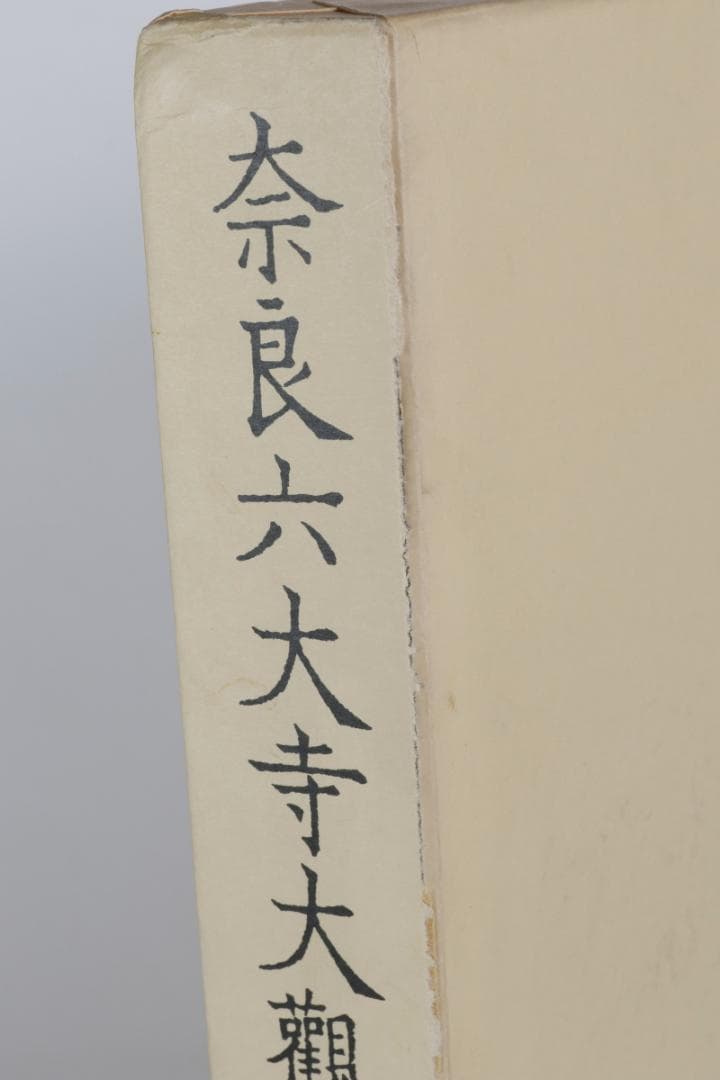 奈良六大寺大觀